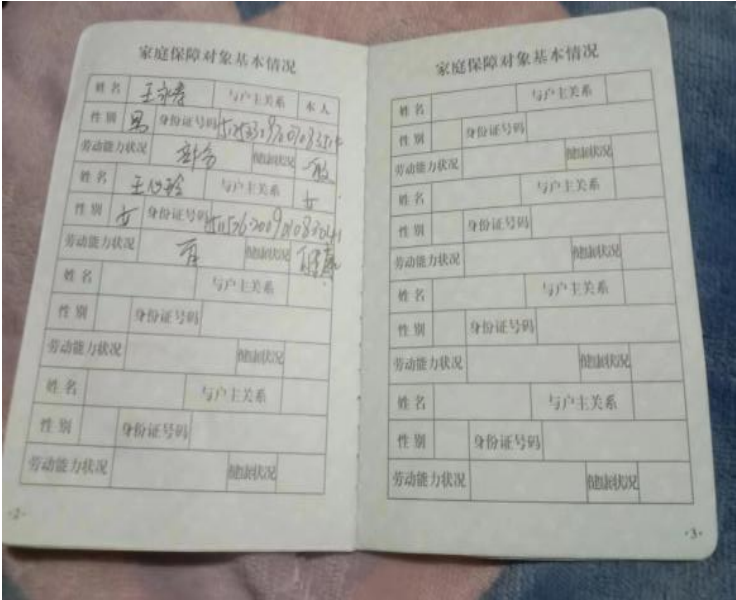 家庭保障对象基本情况
姓名 与户主关系 本人
性别 男 身份证号码
劳动能力状况 部分 健康状况 一般
姓名 与户主关系 女
性别 女 身份证号码
劳动能力状况 有 健康状况 健康
姓名 与户主关系
性别 身份证号码
劳动能力状况 健康状况
姓名 与户主关系
性别 身份证号码
劳动能力状况 健康状况
-2-
家庭保障对象基本情况
姓名 与户主关系
性别 身份证号码
劳动能力状况 健康状况
姓名 与户主关系
性别 身份证号码
劳动能力状况 健康状况
姓名 与户主关系
性别 身份证号码
劳动能力状况 健康状况
姓名 与户主关系
性别 身份证号码
劳动能力状况 健康状况
-3-